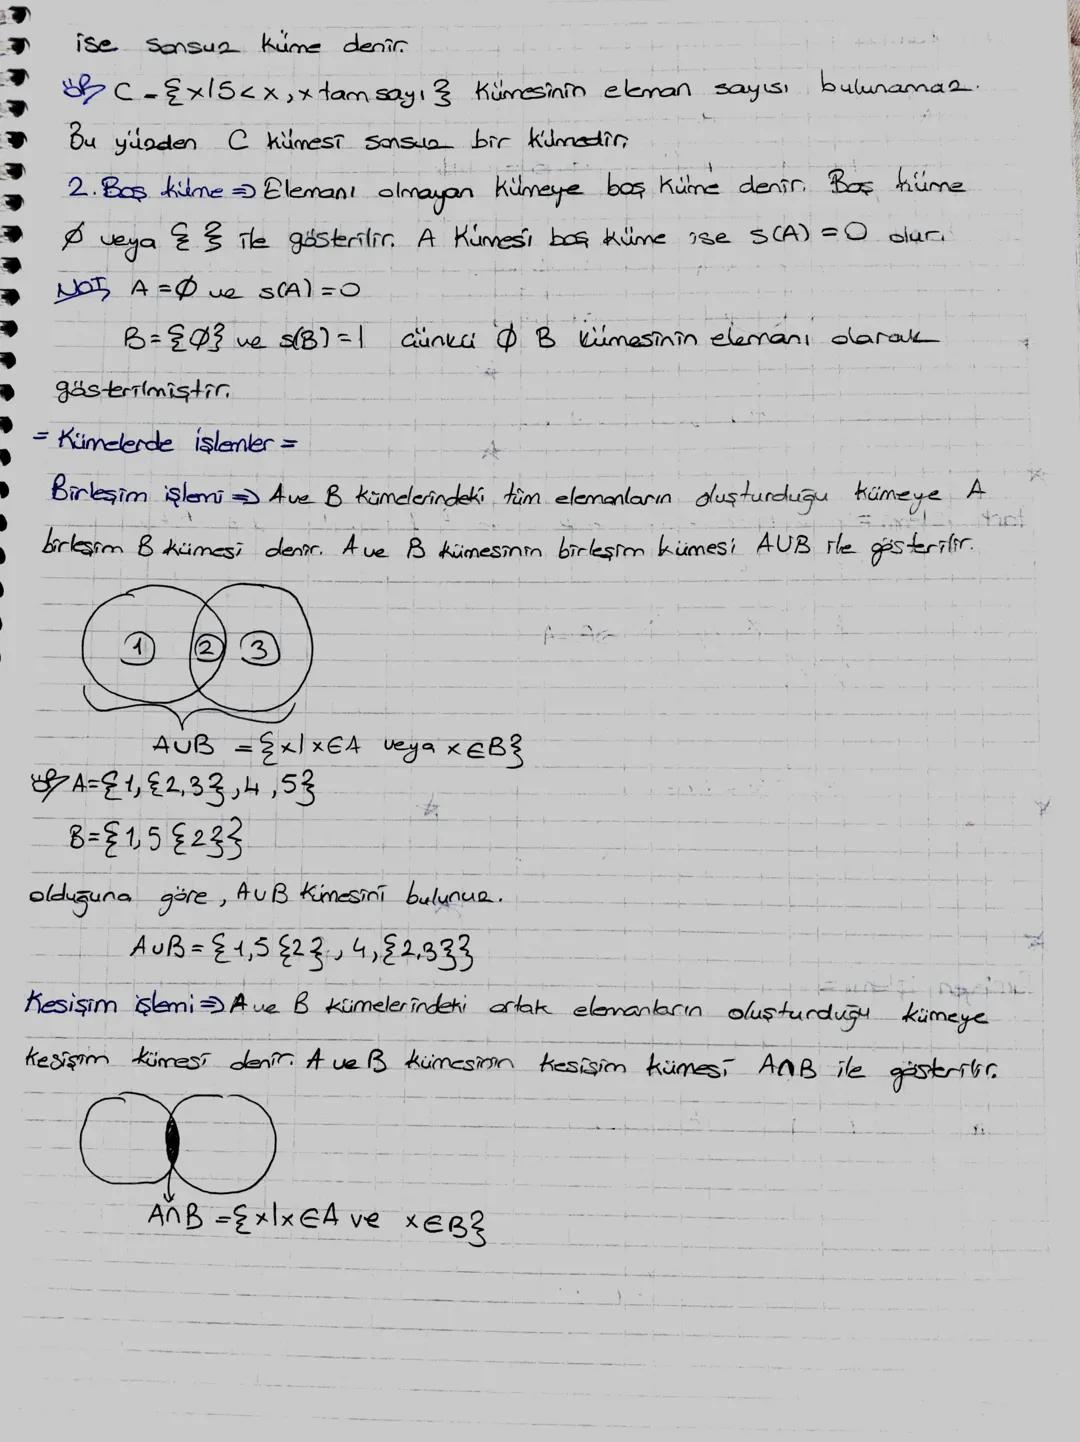 ise sonsuz küme denir.
ör/ C = {x|5<x, x tam sayı} kümesinin eleman sayısı bulunamaz.
Bu yüzden C kümesi sonsuz bir kümedir.
2. Boş küme ⇒ Elemanı olmayan kümeye boş küme denir. Boş küme
∅ veya { } ile gösterilir. A kümesi boş küme ise s(A) = 0 olur.
NOT/ A = ∅ ve s(A) = 0
B = {∅} ve s(B) = 1 çünkü ∅ B kümesinin elemanı olarak
gösterilmiştir.
= Kümelerde işlemler =
Birleşim işlemi ⇒ A ve B kümelerindeki tüm elemanların oluşturduğu kümeye A
birleşim B kümesi denir. A ve B kümesinin birleşim kümesi AUB ile gösterilir.
1 2 3
AUB = {x| x∈A veya x∈B}
ör/ A={1,{2,3},4,5}
B={1,5 {2}}
olduğuna göre, AUB kümesini bulunuz.
AUB = {1,5 {2}, 4, {2,3}}
Kesişim işlemi ⇒ A ve B kümelerindeki ortak elemanların oluşturduğu kümeye
kesişim kümesi denir. A ve B kümesinin kesişim kümesi A∩B ile gösterilir.
A∩B = {x|x∈A ve x∈B}